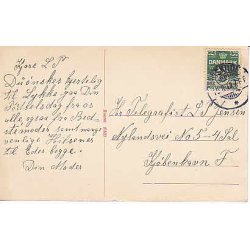 Kære L P
Du ønskes hjertelig
til Lykke paa Din
Fødselsdag fra os
alle, ogsaa fra Bed-
stemoder samt mange
venlige Hilsener
til Eder begge.
Din Moder
DANMARK
Hr Telegrafist L P Jensen
Nylandsvej No 5-4 Sal
København F